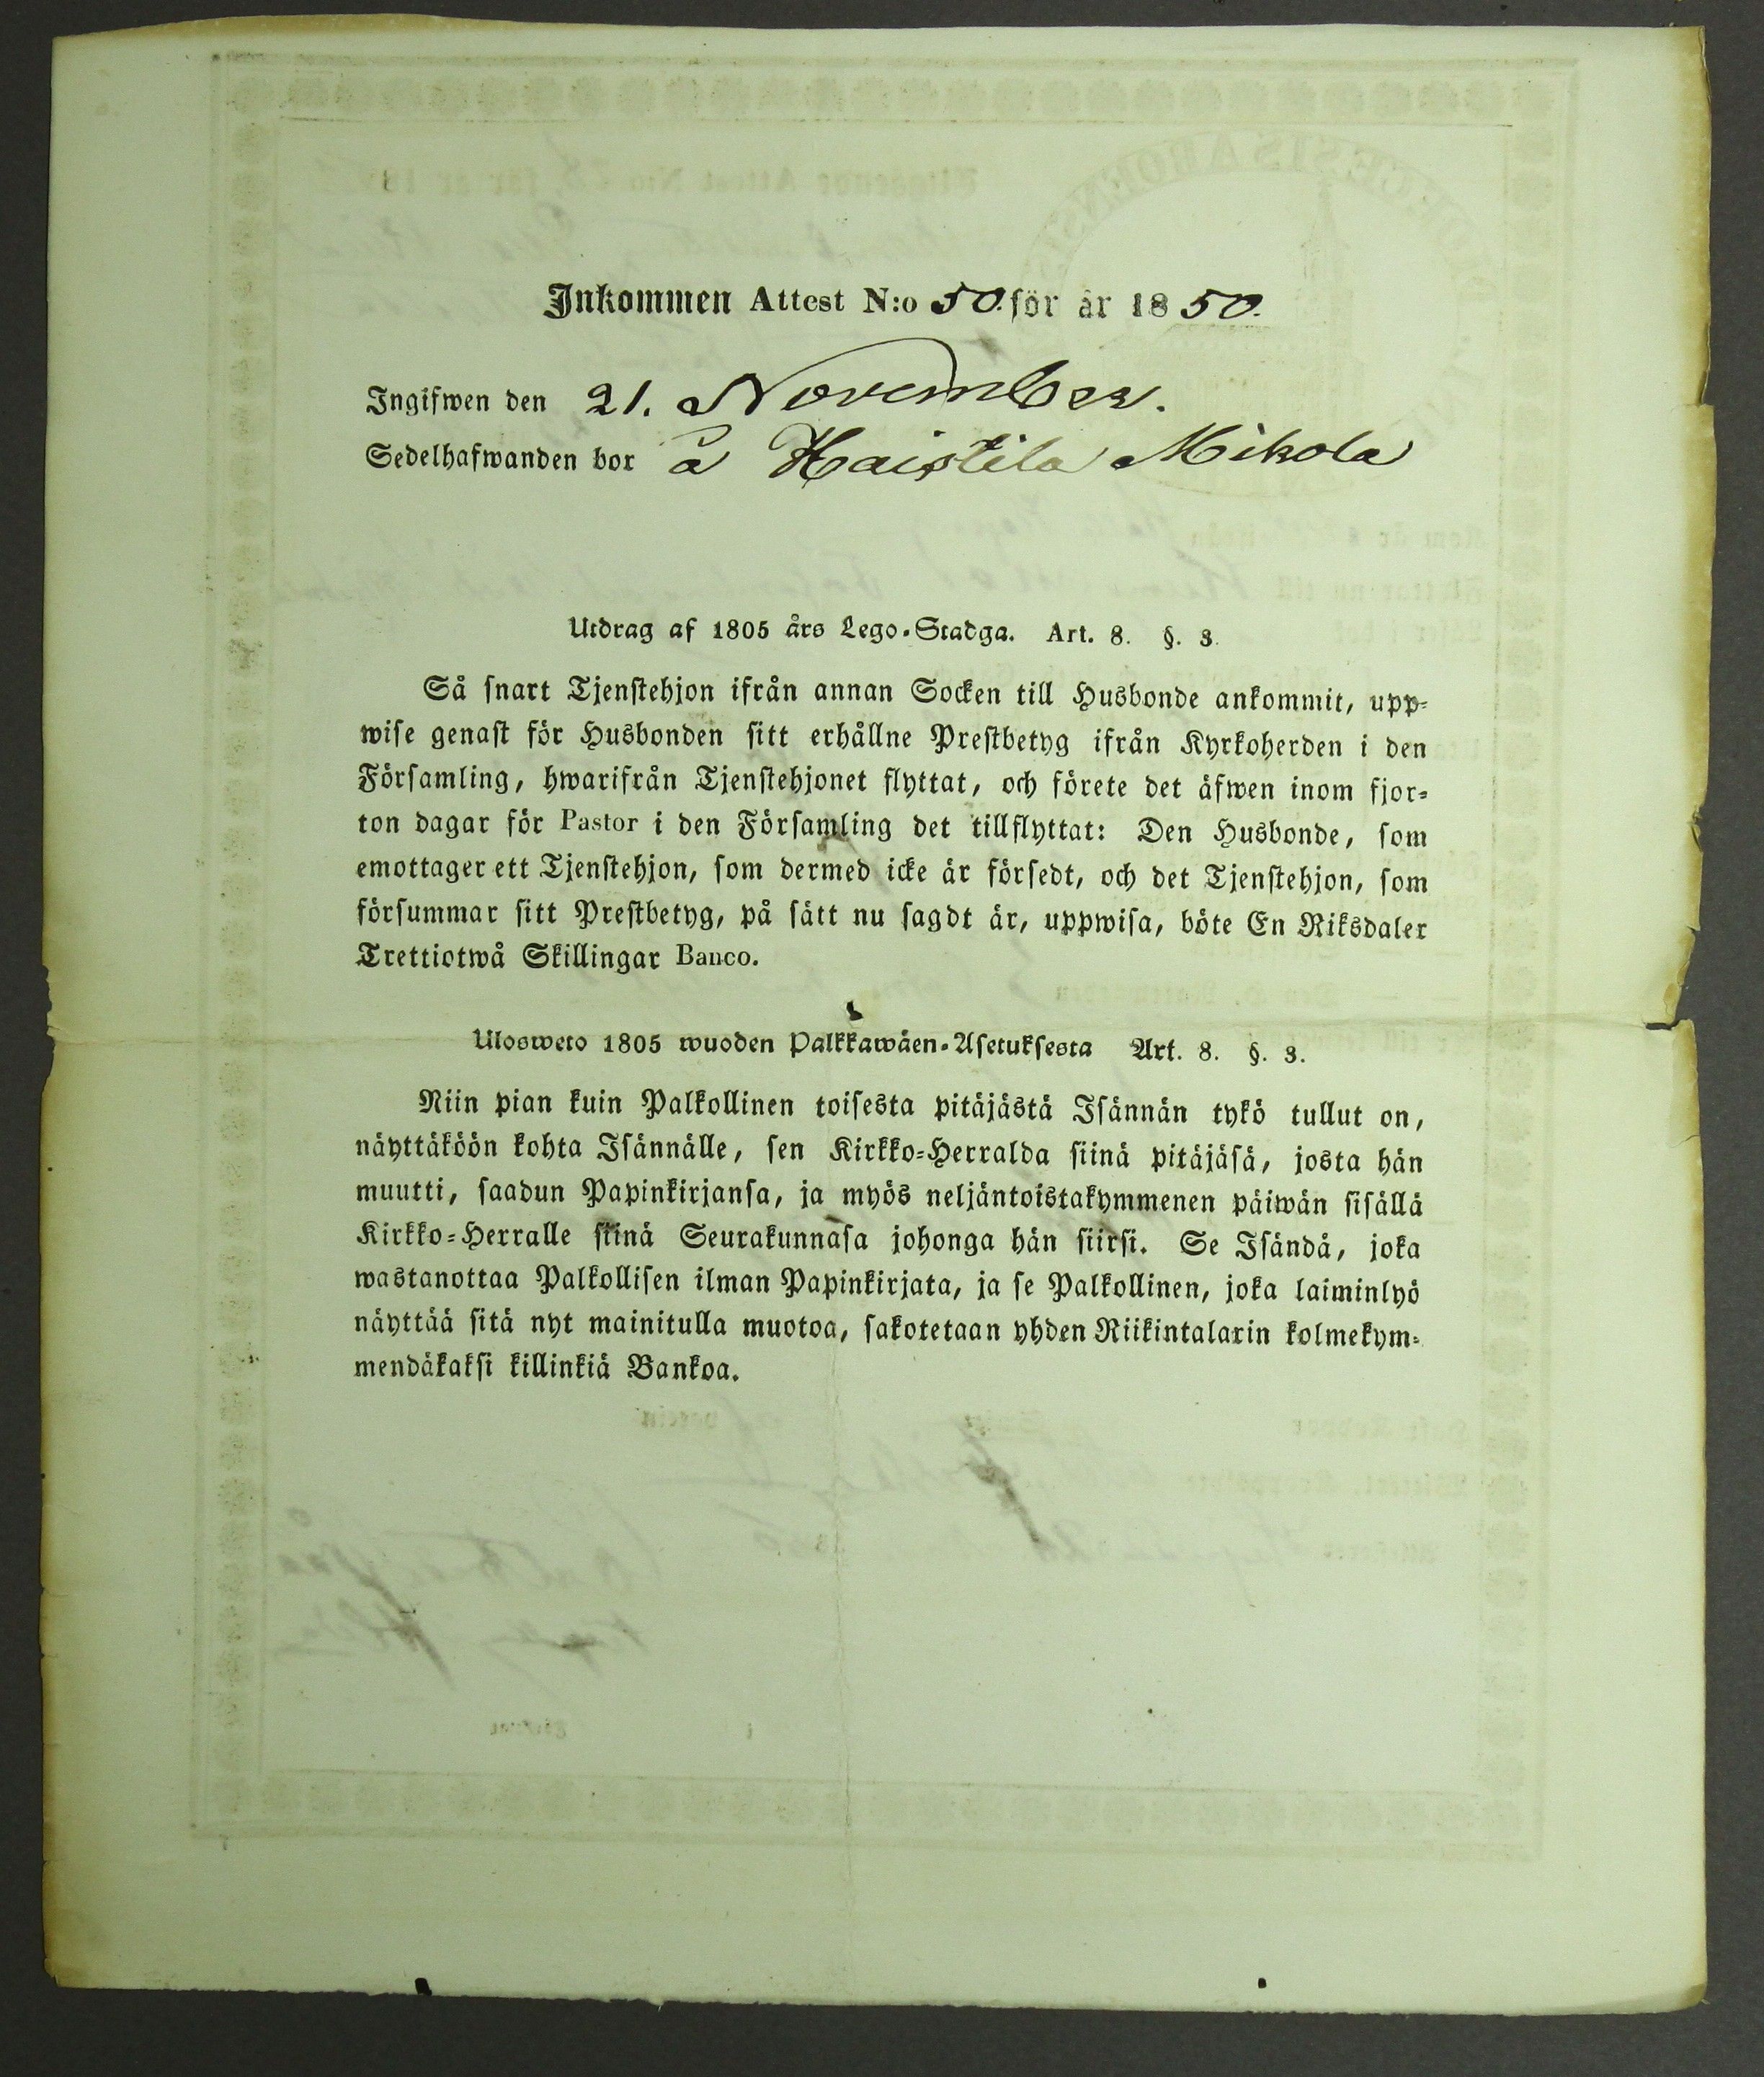 Inkommen Attest N:o 50. för år 1850.
Ingifwen den 21. November.
Sedelhafwanden bor å Haistila Mikola
Utdrag af 1805 års Lego-Stadga. Art. 8. §. 3.
Så snart Tjenstehjon ifrån annan Socken till Husbonde ankommit, upp-
wise genast för Husbonden sitt erhållne Prestbetyg ifrån Kyrkoherden i den
Församling, hwarifrån Tjenstehjonet flyttat, och förete det äfwen inom fjor-
ton dagar för Pastor i den Församling det tillflyttat: Den Husbonde, som
emottager ett Tjenstehjon, som dermed icke är försedt, och det Tjenstehjon, som
försummar sitt Prestbetyg, på sätt nu sagdt är, uppwisa, böte En Riksdaler
Trettiotwå Skillingar Banco.
Ulosweto 1805 wuoden Palkkawäen-Asetuksesta Art. 8. §. 3.
Niin pian kuin Palkollinen toisesta pitäjästä Isännän tykö tullut on,
näyttäköön kohta Isännälle, sen Kirkko-Herralda siinä pitäjäsä, josta hän
muutti, saadun Papinkirjansa, ja myös neljäntoistakymmenen päiwän sisällä
Kirkko-Herralle siinä Seurakunnasa johonga hän siirsi. Se Isändä, joka
wastanottaa Palkollisen ilman Papinkirjata, ja se Palkollinen, joka laiminlyö
näyttää sitä nyt mainitulla muotoa, sakotetaan yhden Riikintalarin kolmekym-
mendäkaksi killinkiä Bankoa.